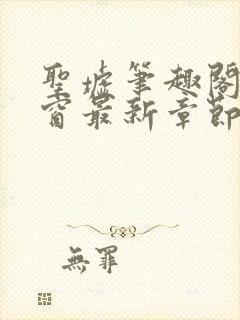 聖墟筆趣閣
窗最新章節
無罪